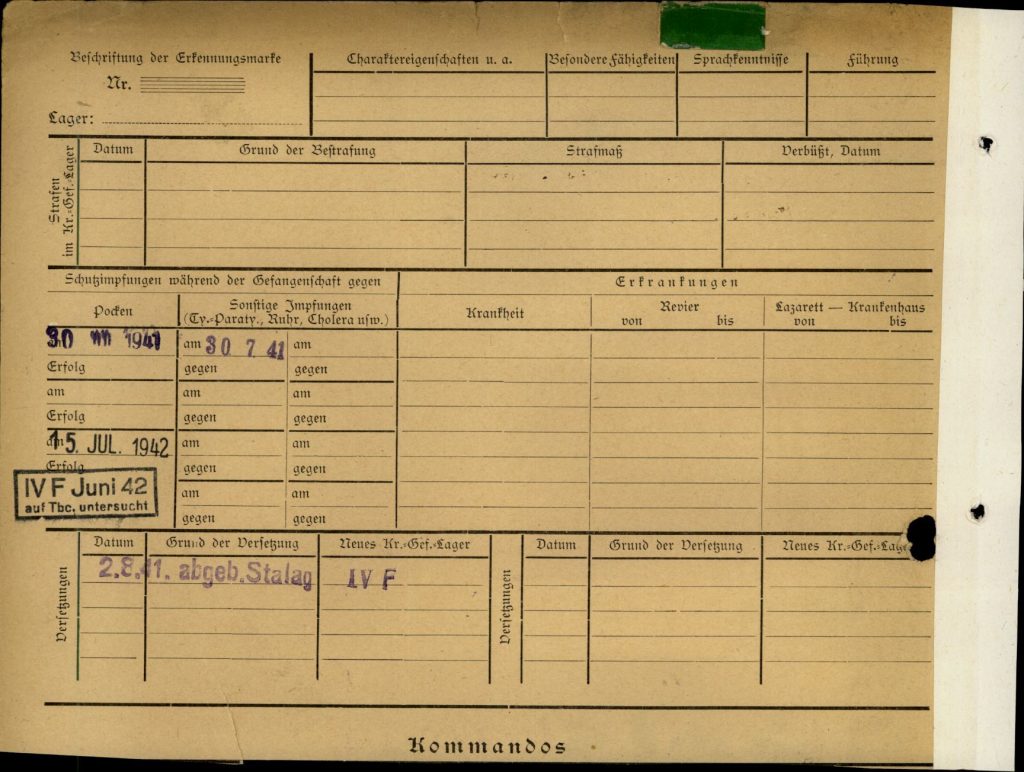 Beschriftung der Erkennungsmarke
Nr.
Lager:
Charaktereigenschaften u. a.
Besondere Fähigkeiten
Sprachkenntnisse
Führung
Strafen
im Kr.-Gef.-Lager
Datum
Grund der Bestrafung
Strafmaß
Verbüßt, Datum
Schutzimpfungen während der Gefangenschaft gegen
Erkrankungen
Pocken
Sonstige Impfungen
(Ty.-Paraty., Ruhr, Cholera usw.)
Krankheit
Revier
von bis
Lazarett — Krankenhaus
von bis
30 VII 1941
am 30 7 41 am
Erfolg gegen gegen
am am am
Erfolg gegen gegen
am 15. JUL. 1942 am am
Erfolg gegen gegen
IV F Juni 42
auf Tbc. untersucht
am am
gegen gegen
Versetzungen
Datum
Grund der Versetzung
Neues Kr.-Gef.-Lager
2.8.41. abgeb. Stalag IV F
Versetzungen
Datum
Grund der Versetzung
Neues Kr.-Gef.-Lager
Kommandos